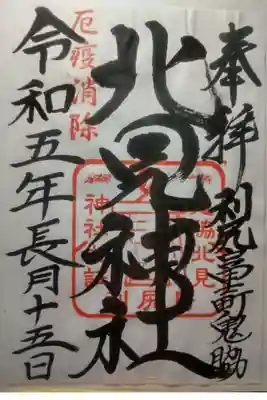 奉拝
利尻富士町鬼脇
北見神社
厄疫消除
令和五年長月十五日